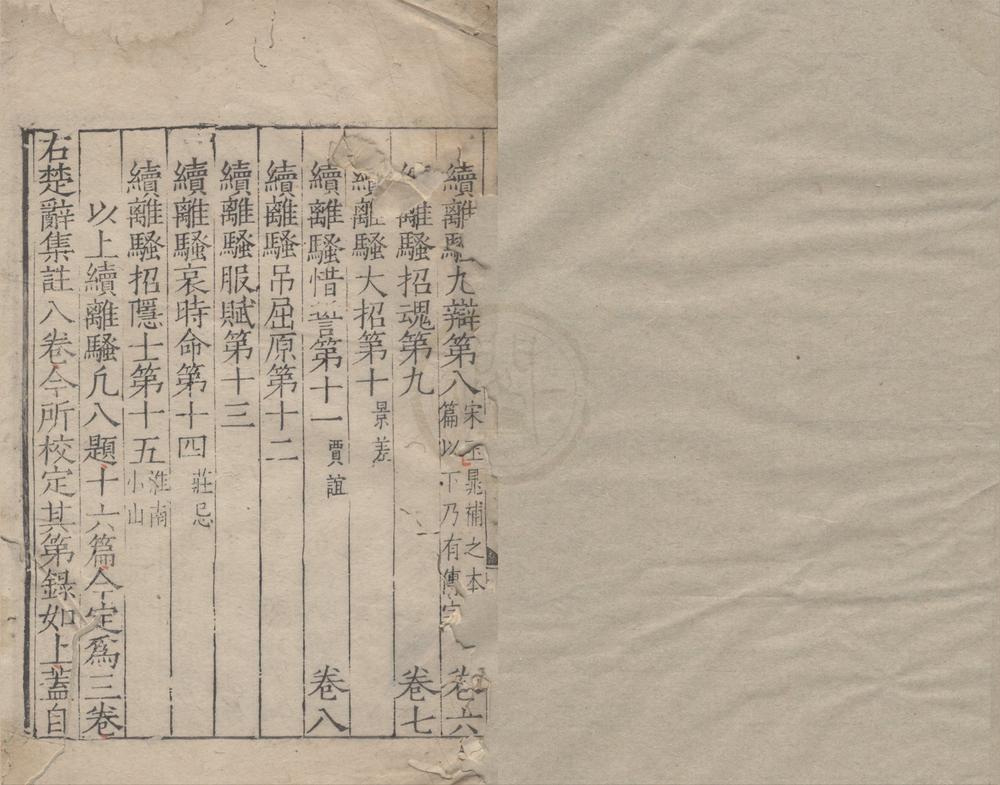 續離騷九辯第八 宋玉晁補之本篇以下乃有傳字 卷六
離騷招魂第九 卷七
續離騷大招第十 景差
續離騷惜誓第十一 賈誼 卷八
續離騷吊屈原第十二
續離騷服賦第十三
續離騷哀時命第十四 莊忌
續離騷招隱士第十五 淮南小山
以上續離騷凡八題十六篇今定爲三卷
右楚辭集註八卷今所校定其第錄如上蓋自